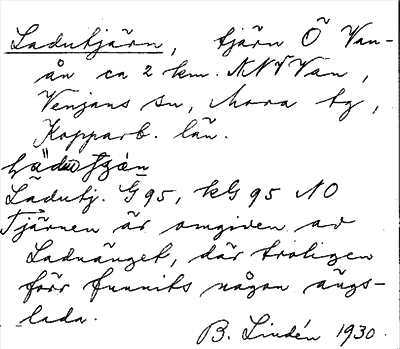 Ladutjärn, tjärn Ö Van-
ån ca 2 km. NNV Van,
Venjans sn, Mora tg,
Kopparb. län.
Ladutj. G95, kG 95 NO
Tjärnen är omgiven av
Laduänget, där troligen
förr funnits någon ängs-
lada.
B. Lindén 1930.